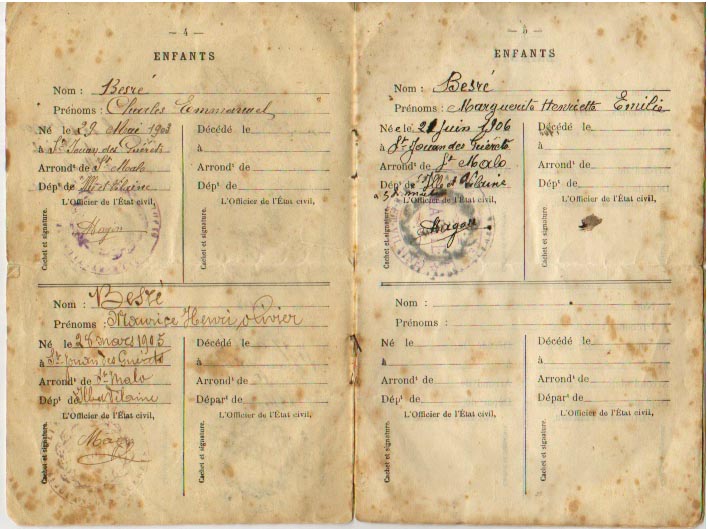 — 4 —
ENFANTS
Nom : Besré
Prénoms : Charles Emmanuel
Né le 29 Mai 1903 Décédé le
à St Jouan des Guérets à
Arrondt de St Malo Arrondt de
Dépt de Ille et Vilaine Dépt de
L'Officier de l'État civil, L'Officier de l'État civil,
Cachet et signature. Cachet et signature.
Nom : Besré
Prénoms : Maurice Henri Olivier
Né le 28 mars 1905 Décédé le
à St Jouan des Guérets à
Arrondt de St Malo Arrondt de
Dépt de Ille et Vilaine Dépt de
L'Officier de l'État civil, L'Officier de l'État civil,
Cachet et signature. Cachet et signature.
— 5 —
ENFANTS
Nom : Besré
Prénoms : Marguerite Henriette Emilie
Née le 21 juin 1906 Décédé le
à St Jouan des Guérets à
Arrondt de St Malo Arrondt de
Dépt de Ille et Vilaine Dépt de
à 5 h. matin
L'Officier de l'État civil, L'Officier de l'État civil,
Cachet et signature. Cachet et signature.
Nom :
Prénoms :
Né le Décédé le
à à
Arrondt de Arrondt de
Dépt de Départ de
L'Officier de l'État civil, L'Officier de l'État civil,
Cachet et signature. Cachet et signature.